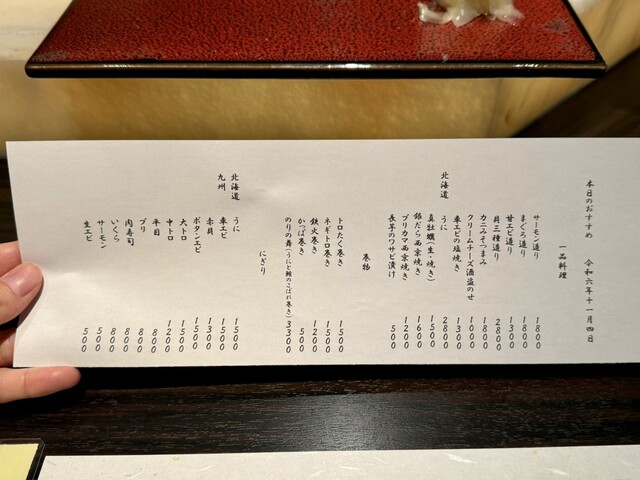 本日のおすすめ　令和六年十一月四日
一品料理
サーモン造り　1800
まぐろ造り　1800
甘エビ造り　1300
貝三種造り　2800
カニみそつまみ　1800
クリームチーズ酒盗のせ　1000
車エビの塩焼き　1300
北海道　うに　2800
真牡蠣(生・焼き)　1500
銀だら西京焼き　1600
ブリカマ西京焼き　1200
長芋のワサビ漬け　500
巻物
トロたく巻き　1500
ネギトロ巻き　1500
鉄火巻き　1200
かっぱ巻き　500
のりの舞(うにと鮪のこぼれ巻き)　3300
にぎり
北海道　うに　1500
九州　車エビ　1500
赤貝　1300
ボタンエビ　1500
大トロ　1500
中トロ　1200
平目　800
ブリ　800
肉寿司　800
いくら　800
サーモン　500
生エビ　500